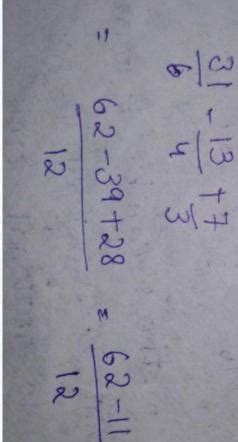 31/6 - 13/4 + 7/3
= 62-39+28/12 = 62-11/12